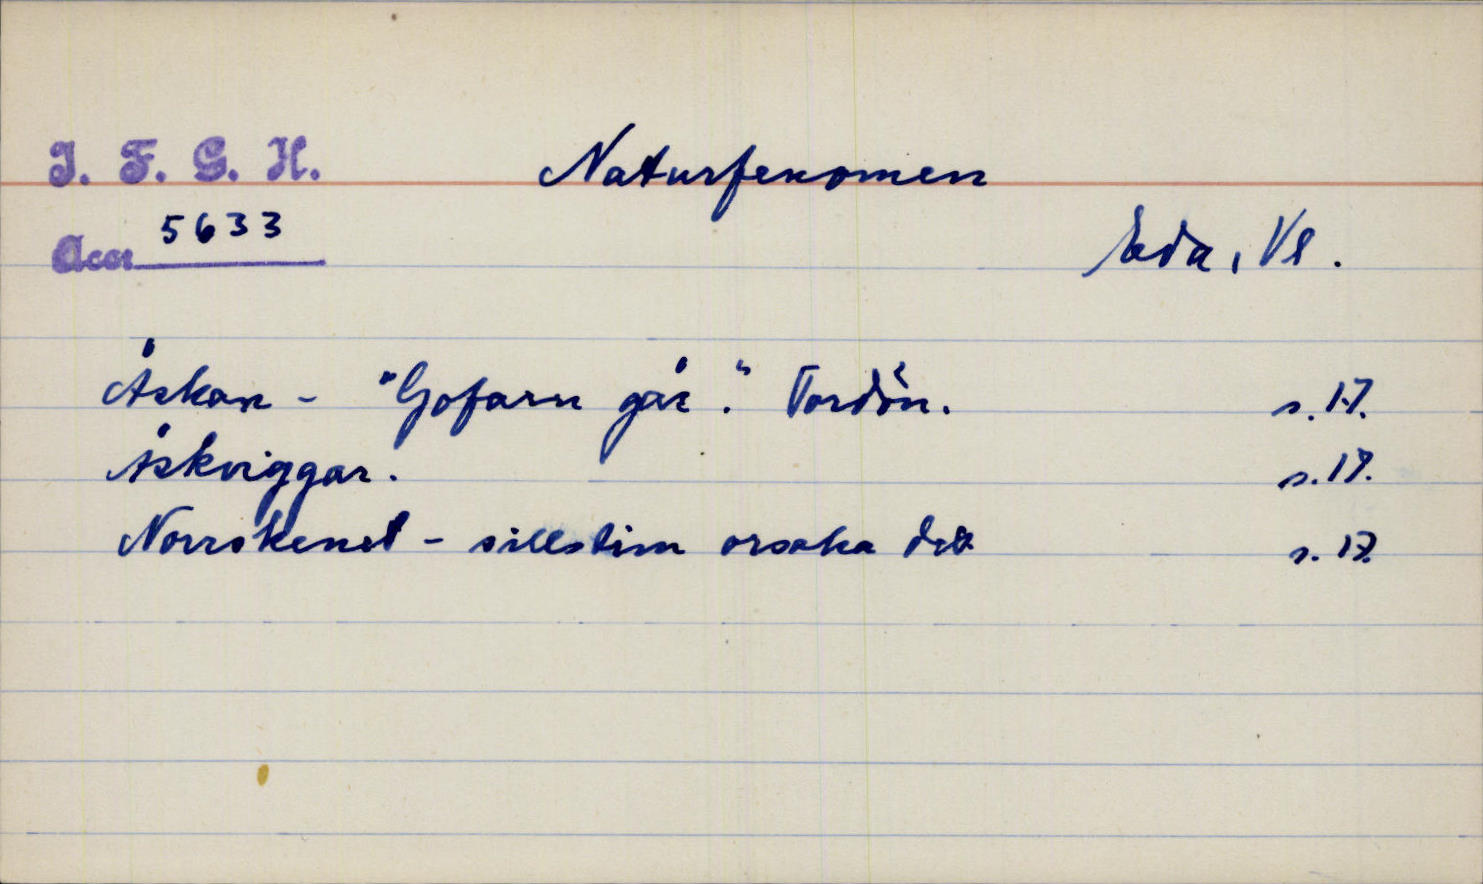 I. F. G. H.
Naturfenomen
Acc: 5633
Eda, Vl.
Åskan - "Gofarn går." Tordön. s. 17.
Åskviggar. s. 17.
Norrskenet - sillstim orsaka det s. 17.